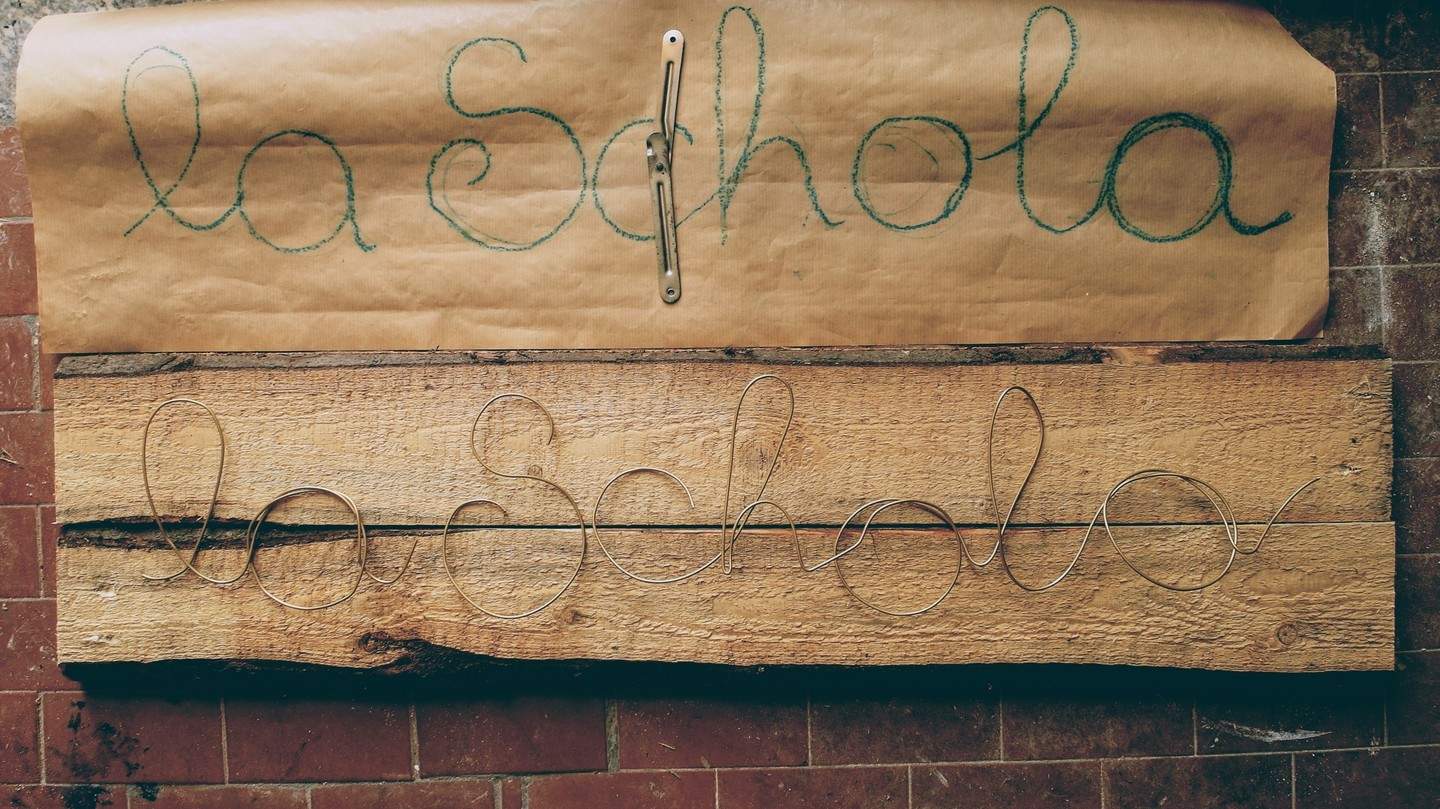 la Schola
la Schola